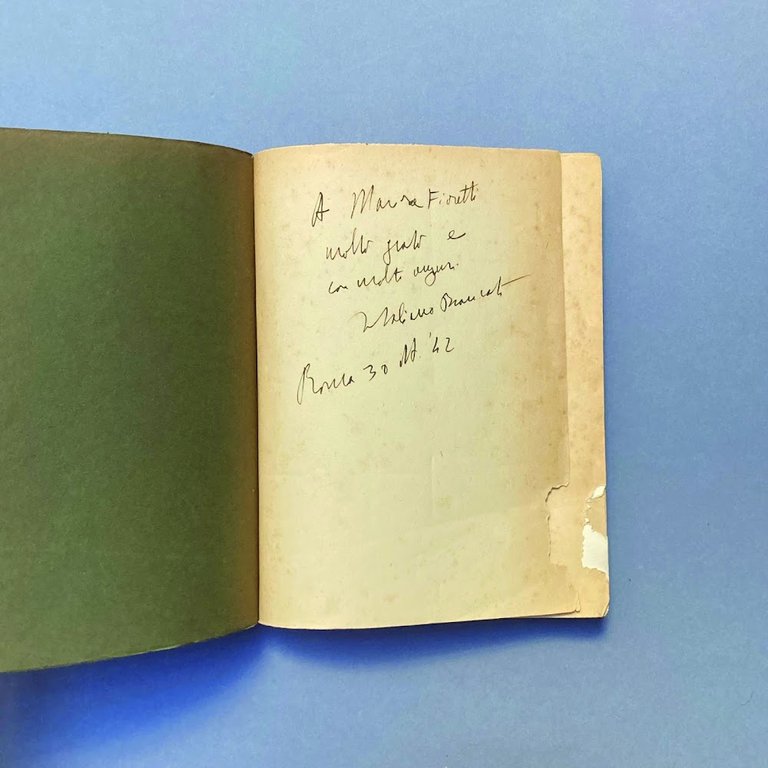 A Maria Fioretti
molto grato e
con molti auguri.
Vitaliano Brancati
Roma 30 ott. '42